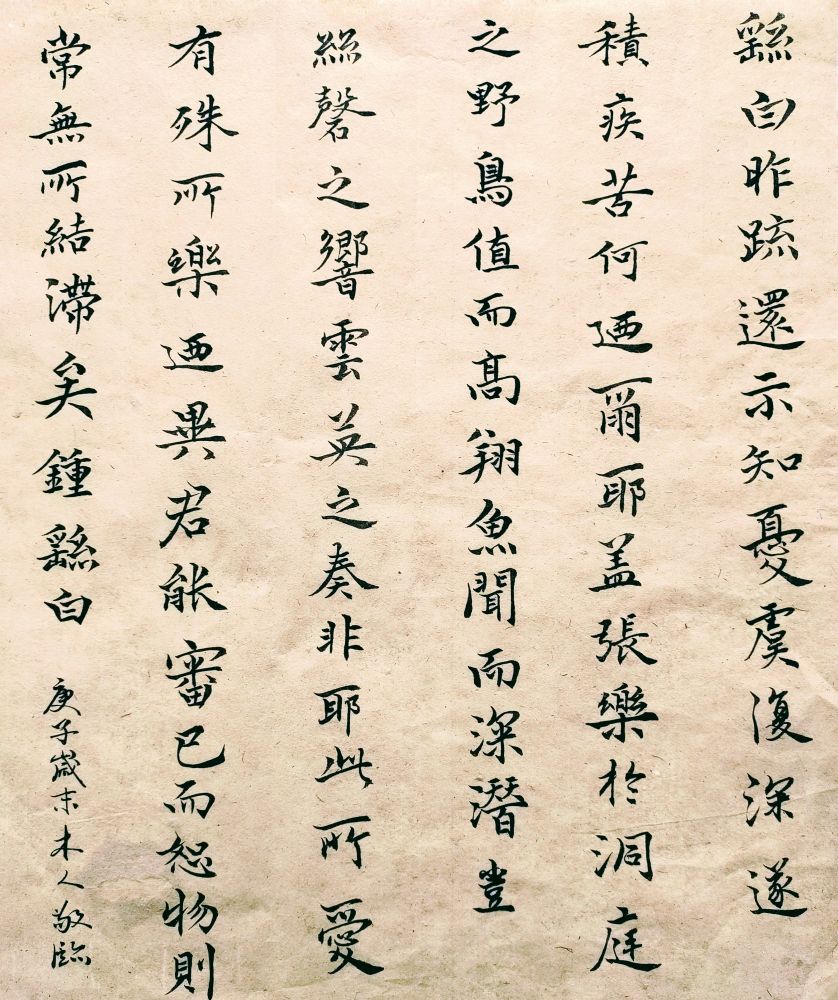 繇白昨疏還示知憂虞復深遂
積疾苦何迺爾耶盖張樂於洞庭
之野鳥值而高翔魚聞而深潛豈
絲磬之響雲英之奏非耶此所愛
有殊所樂迺異君能審己而恕物則
常無所結滯矣鍾繇白
庚子歲末木人敬臨